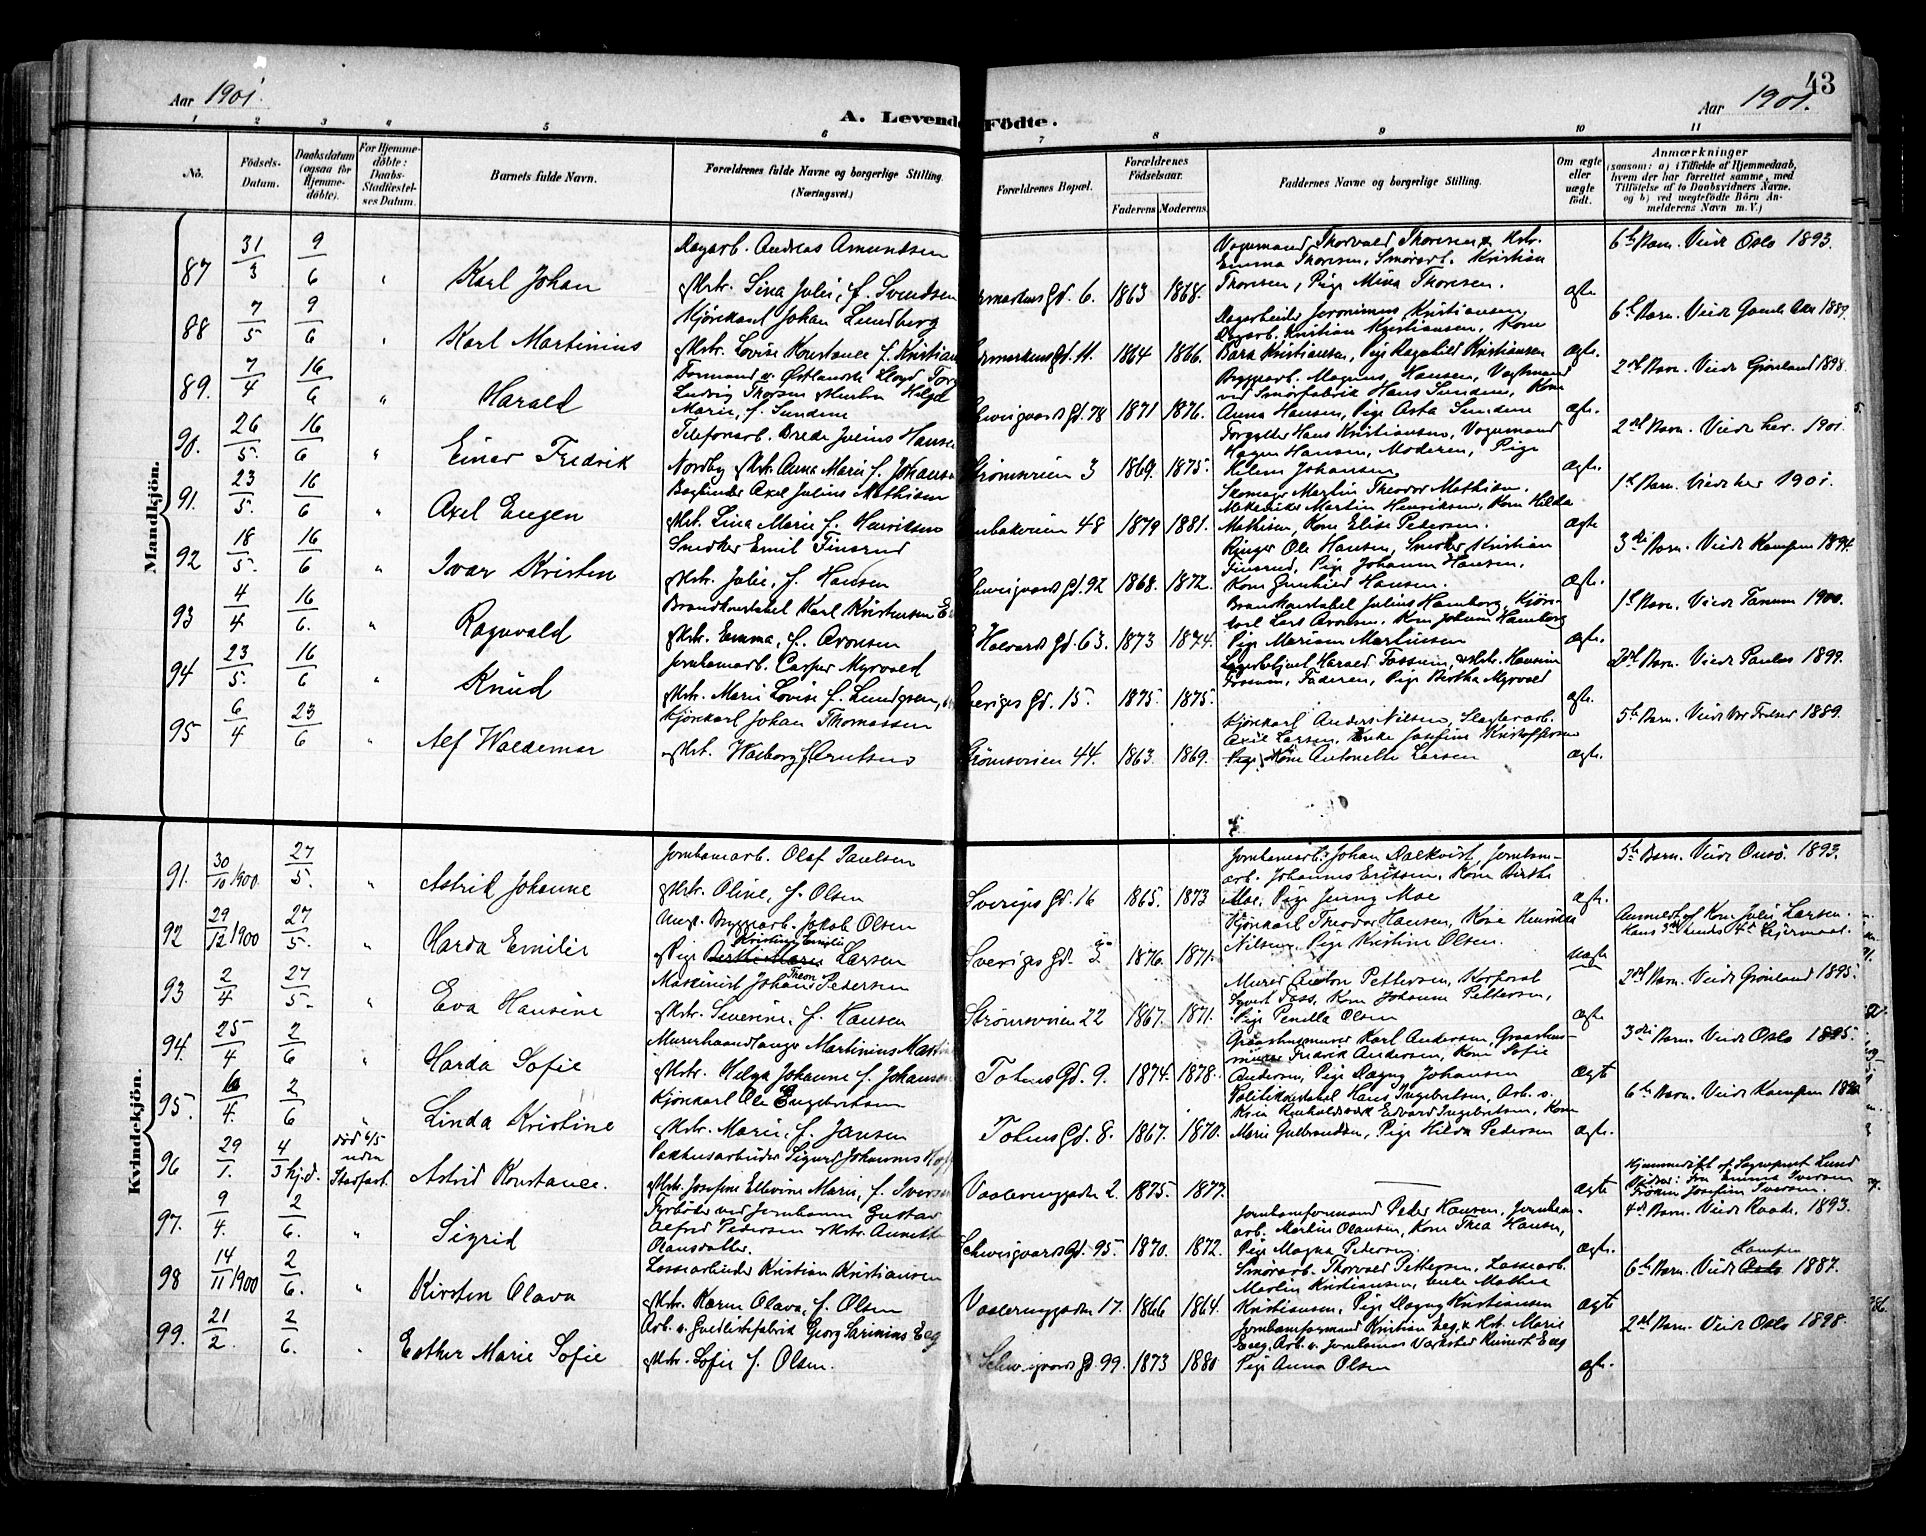 Aar 1901.
A. Levende Födte.
Aar 1901.
43
1 2 3 4 5 6 7 8 9 10 11
No.
Födsels-Datum.
Daabsdatum (ogsaa för Hjemme-döbte).
For Hjemme-döbte: Daabs-Stadfæstel-ses Datum.
Barnets fulde Navn.
Forældrenes fulde Navne og borgerlige Stilling. (Næringsvei.)
Forældrenes Bopæl.
Forældrenes Födselsaar.
Faderens Moderens.
Faddernes Navne og borgerlige Stilling.
Om ægte eller uægte födt.
Anmærkninger
(saasom: a) i Tilfælde af Hjemmedaab, hvem der har forrettet samme, med Tilföielse af to Daabsvidners Navne, og b) ved uægtefödte Börn An-melderens Navn m. V.)
Mandkjön.
87 31/3 9/6 " Karl Johan
Dagarb. Andreas Amundsen
& Hstr. Lina Julie, f. Svendsen
Gd. 6. 1863 1868.
Vognmand Thorvald Thoresen & Hstr.
Emma Thoresen, Smörarb. Kristian
Thoresen, Pige Mina Thoresen.
ægte
6te Barn. Viede Oslo 1893.
88 7/5 9/6 " Karl Martinius
Kjörekarl Johan Lundberg
& Hstr. Lovise Konstance f. Kristian
Gd. 11. 1864 1866.
Dagarbeider Jeronimus Kristiansen,
Dagarb. Kristian Kristiansen, Kone
Sara Kristiansen, Pige Ragnhild Kristiansen
ægte.
6te Barn. Viede Gamle Aker 1889.
89. 7/4 16/6 " Harald
Formand v. Østlandske Lloyd
Ludvig Thorsen & Hustru Helga
Marie, f. Sundene
Schweigaards Gd. 78 1871 1876.
Bryggearb. Magnus Hansen, Vagtmand
ved Smörfabrik Hans Sundene, Kone
Anna Hansen, Pige Asta Sundene
ægte.
2det Barn. Viede Grönland 1898.
90. 26/5. 16/6 " Einar Fredrik
Telefonarb. Brede Julius Hansen
Nordby & Hstr. Anna Marie f. Johansen
Strömsveien 3 1869. 1875.
Forgylder Hans Kristiansen, Vognmand
Hagen Hansen, Moderen, Pige
Helene Johansen
ægte.
2det Barn. Viede her. 1901.
91. 23/5. 16/6 " Axel Eugen
Bogbinder Axel Julius Mathisen
& Hstr. Lina Marie f. Henriksen
48 1879 1881.
Skomager Martin Theodor Mathisen,
Martin Henriksen, Kone Hilda
Mathisen, Kone Elise Pedersen.
ægte
1ste Barn. Viede her 1901.
92 18/5. 16/6 " Ivar Kristen
Snedker Emil Finsrud
& Hstr. Julie, f. Hansen
Schweigaards Gd. 92 1868. 1872.
Ringer Ole Hansen, Snedker Kristian
Finsrud, Pige Johanne Hansen,
Kone Gunhild Hansen.
ægte.
3die Barn. Viede Kampen 1894.
93 4/4 16/6. " Ragnvald
Brandkonstabel Karl Kristensen
& Hstr. Emma, f. Aronsen
St. Halvards Gd. 63. 1873 1874.
Brandkonstabel Julius Hamborg, Kjöre-
karl Lars Aronsen, Kone Johanne Hamborg
Pige Mariane Martinsen
ægte.
1ste Barn. Viede Tanum 1900.
94 23/5. 16/6 " Knud
Jernbanearb. Casper Myrvold
& Hstr. Marie Lovise f. Lundgreen,
Sveriges Gd. 15. 1875. 1875.
Harald Fossum, & Hstr. Hansine
Fossum, Faderen, Pige Bertha Myrvold
ægte.
Barn. Viede Paulus 1899.
95 6/4 23/6 " Alf Waldemar
Kjörekarl Johan Thomassen
& Hstr. Walborg f. Arntsen
Strömsveien 44. 1863. 1869.
Kjörekarl Anders Nilsen, Slagterarb.
Axel Larsen, Enke Josefine Kristoffersen
Pige, Kone Antonette Larsen
ægte.
5te Barn. Viede Vor Frelser 1889.
Kvindekjön.
91. 30/10 1900. 27/5. " Astrid Johanne
Jernbanearb. Olaf Paulsen
& Hstr. Oline, f. Olsen
Sveriges Gd. 16 1865. 1873
Jernbanearb. Johan Dalkvist, Jernbane-
arb. Johannes Eriksen, Kone Birthe
Moe, Pige Jenny Moe
ægte.
5te Barn. Viede Onsö. 1893.
92 29/12 1900 27/5. " Harda Emilie
Ungk. Bryggearb. Jakob Olsen
Kristine Emilie
& Pige Berthe Marie Larsen
Sveriges Gd. 3. 1876. 1871.
Kjörekarl Theodor Hansen, Kone Henrikke
Nilsen, Pige Kristine Olsen.
uægte
Anmeldt af Kone Julie Larsen.
Hans 3die hendes 4de Leiermaal.
93 2/4 27/5. " Eva Hansine
Maskinist Johan Theon Pedersen
& Hstr. Severine, f. Hansen
Strömsveien 22 1867. 1871.
Murer Anton Pettersen, Korporal
Syvert Foss, Kone Johanne Pettersen,
Pige Pernille Olsen
ægte
2det Barn. Viede Grönland 1895.
94. 25/4 2/6 " Harda Sofie
Murerhaandlanger Martinius
& Hstr. Helga Johanne f. Johansen
Tøiens Gd. 9. 1874. 1878.
Graastensmurer Karl Andersen, Graastens-
murer Fredrik Andersen, Kone Sofie
Andersen, Pige Dagny Johansen
ægte
3die Barn. Viede Oslo 1895.
95. 16/4. 2/6 " Linda Kristine
Kjörekarl Ole Engebretsen
& Hstr. Marie, f. Jansen
Tøiens Gd. 8. 1867. 1870.
Politikonstabel Hans Ingebretsen, Arb. v.
Edvard Ingebretsen, Kone
Marie Gulbrandsen, Pige Hilda Pedersen
ægte.
6te Barn. Viede Kampen
96 29/1. 4/3 hj.d. död 4/5 uden Stadfæst. Astrid Konstance.
Pakhusarbeider Sigurd Johannes
& Hstr. Josefine Ellevine Marie, f. Iversen
Vaalerenggaden 2. 1875. 1877.
ægte
Hjemmedöbt af Sognepræst Lund
Vidner: Fru Emma Iversen
Fröken Josefine Iversen.
97. 9/4. 2/6. " Sigrid
Fyrböder ved Jernbanen Gustav
Alfred Pedersen & Hstr. Annette
Olausdatter.
Schweigaards Gd. 95. 1870. 1872.
Jernbaneformand Peter Hansen, Jernbane-
arb. Martin Olausen, Kone Thea Hansen,
Pige Magna Petersen.
ægte.
4de Barn. Viede Raade. 1893.
98 14/11 1900 2/6. " Kirsten Olava
Lossearbeider Kristian Kristiansen
& Hstr. Karen Olava, f. Olsen
Vaalerenggaden 17. 1866 1864.
Smörarb. Thorvald Pettersen, Lossearb.
Martin Kristiansen, Enke Mathea
Kristiansen, Pige Dagny Kristiansen
ægte
Kampen
6te Barn. Viede Oslo 1887.
99. 21/2. 2/6. " Esther Marie Sofie
Arb. v. Georg Sarinius Eeg
& Hstr. Sofie f. Olsen.
Schweigaards Gd. 99. 1873 1880
Jernbaneformand Kristian Eeg & Hst. Marie
Eeg, Arb. v. Jernbanens Værksted Reinert Eeg
Pige Anna Olsen
ægte.
2det Barn. Viede Oslo 1898.